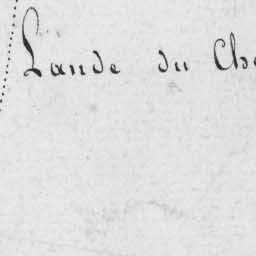 Lande du Che